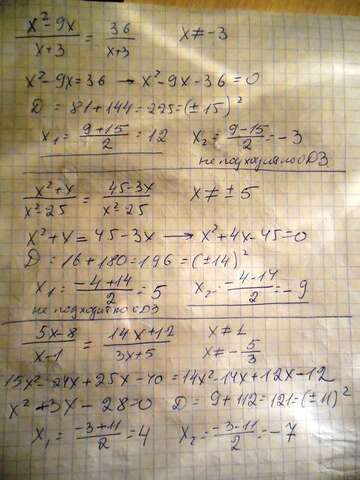 (x²-9x)/(x+3) = 36/(x+3) x≠-3
x²-9x=36 → x²-9x-36=0
D = 81+144=225=(±15)²
x₁=(9+15)/2=12 x₂=(9-15)/2=-3
не подходит по ОДЗ
(x²+x)/(x²-25) = (45-3x)/(x²-25) x≠±5
x²+x=45-3x → x²+4x-45=0
D=16+180=196=(±14)²
x₁=(-4+14)/2=5 x₂=(-4-14)/2=-9
не подходит по ОДЗ
(5x-8)/(x-1) = (14x+12)/(3x+5) x≠1
x≠-5/3
15x²-24x+25x-40=14x²-14x+12x-12
x²+3x-28=0 D=9+112=121=(±11)²
x₁=(-3+11)/2=4 x₂=(-3-11)/2=-7